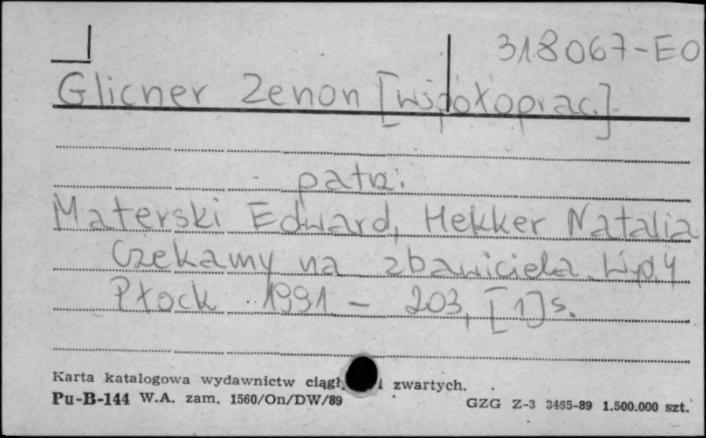 318067-EO
Glicner Zenon [współoprac.]
patrz:
Materski Edward, Hekker Natalia
Czekamy na zbawiciela. Wyd. 4
Płock 1991 - 203, [1] s.
Karta katalogowa wydawnictw ciągł. i zwartych.
Pu-B-144 W.A. zam. 1560/On/DW/89
GZG Z-3 3465-89 1.500.000 szt.